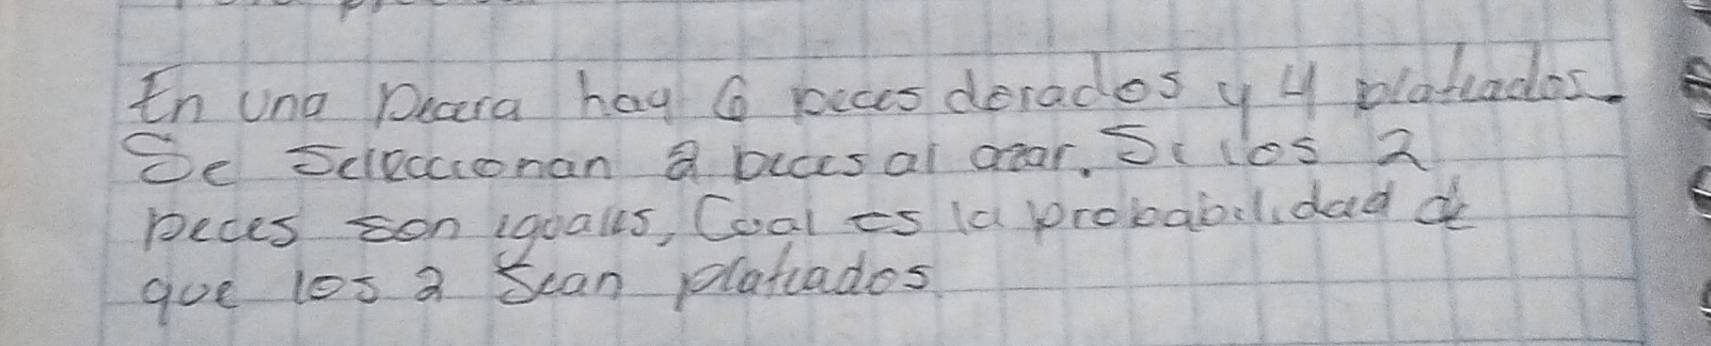 En una pecera hay 6 peces dorados y 4 plateados.
Se seleccionan 2 peces al azar. Si los 2
peces son iguales, Cual es la probabilidad de
que los 2 sean plateados